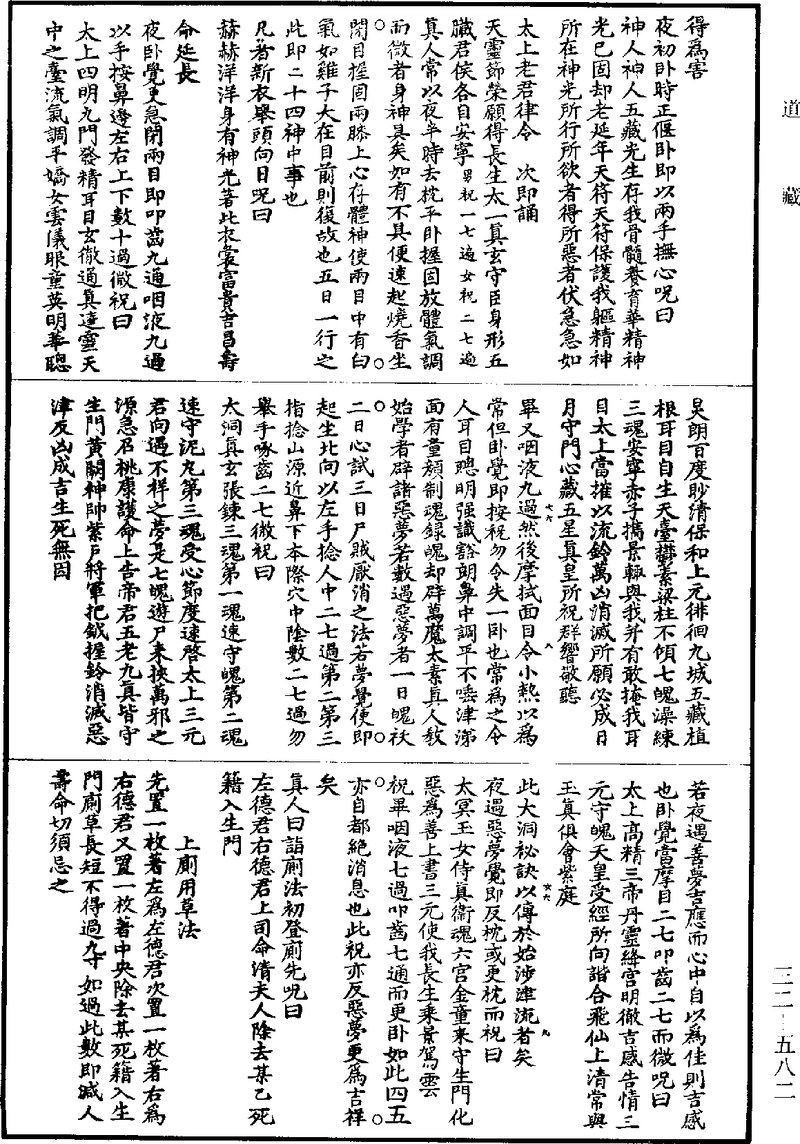 道藏
得爲害
夜初卧時正偃卧即以兩手撫心呪曰
神人神人五藏先生存我骨髓養育華精神
光已固却老延年天符天符保護我軀精神
所在神光所行所欲者得所惡者伏急急如
太上老君律令　次即誦
天靈節榮願得長生太一真玄守臣身形五
臟君侯各自安寧男祝一七遍女祝二七遍
真人常以夜半時去枕平卧握固放體氣調
而微者身神具矣如有不具便速起燒香坐
閉目握固兩膝上心存體神使兩目中有白
氣如雞子大在目前則復故也五日一行之
此即二十四神中事也
凡著新衣舉頭向日呪曰
赫赫洋洋身有神光著此衣裳富貴吉昌壽
命延長
夜卧覺更急閉兩目即叩齒九通咽液九過
以手按鼻邊左右上下數十過微祝曰
太上四明九門發精耳目玄徹通真達靈天
中之臺流氣調平嬌女雲儀眼童英明華聰
晃朗百度眇清保和上元徘徊九城五藏植
根耳目自生天臺鬱素梁柱不傾七魄澡練
三魂安寧赤子攜景輙與我并有敢掩我耳
目太上當摧以流鈴萬凶消滅所願必成日
月守門心藏五星真皇所祝群響敬聽
畢又咽液九過然後摩拭面目令小熱以爲
常但卧覺即按祝勿令失一卧也常爲之令
人耳目聰明强識豁朗鼻中調平不唾津涕
面有童顔制魂録魄却辟萬魔太素真人教
始學者辟諸惡夢若數遇惡夢者一曰魄祆
二曰心試三曰尸賊厭消之法若夢覺便即
起坐北向以左手捻人中二七過第二第三
指捻山源近鼻下本際穴中陰數二七過勿
舉手啄齒二七微祝曰
太洞真玄張鍊三魂第一魂速守魄第二魂
速守泥丸第三魂受心節度速啓太上三元
君向遇不祥之夢是七魄遊尸来挾萬邪之
源急召桃康護命上告帝君五老九真皆守
生門黃闕神帥紫戶將軍把鉞握鈴消滅惡
津反凶成吉生死無因
若夜遇善夢吉應而心中自以爲佳則吉感
也卧覺當摩目二七叩齒二七而微呪曰
太上高精三帝丹靈絳宮明徹吉感告情三
元守魄天皇受經所向諧合飛仙上清常與
玉真俱會紫庭
此大洞祕訣以傳於始涉津流者矣
夜遇惡夢覺即反枕或更枕而祝曰
太冥玉女侍真衛魂六宮金童来守生門化
惡爲善上書三元使我長生乘景駕雲
祝畢咽液七過叩齒七通而更卧如此四五
亦自都絶消息也此祝亦反惡夢更爲吉祥
矣
真人曰詣廁法初登廁先呪曰
左德君右德君上司命清夫人除去某乙死
籍入生門
上廁用草法
先置一枚著左爲左德君次置一枚著右爲
右德君又置一枚著中央除去某死籍入生
門廁草長短不得過九寸如過此數即減人
壽命切須忌之
三二—五八二